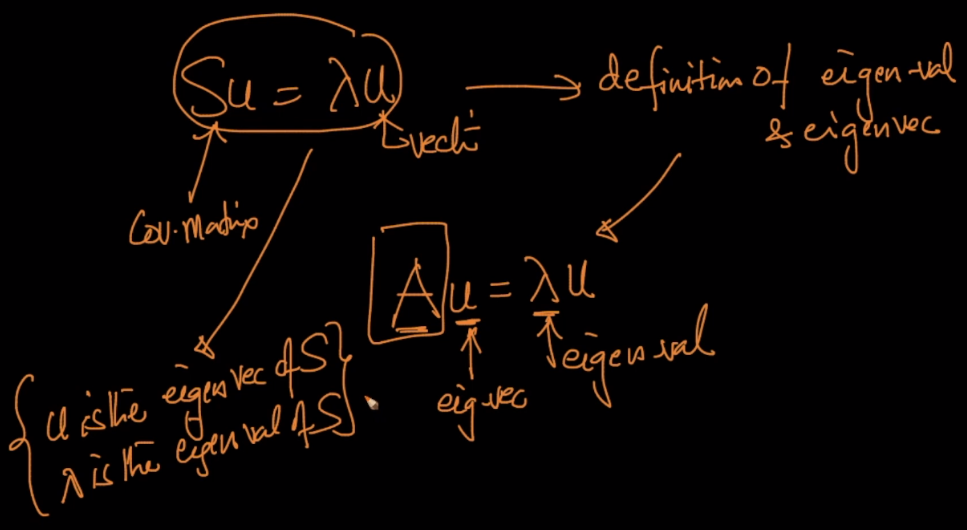 Su = λu → definition of eigen-val
& eigenvec
Cov. Matrix
A u = λ u
eig vec
eigen val
{ u is the eigen vec of S }
λ is the eigen val of S